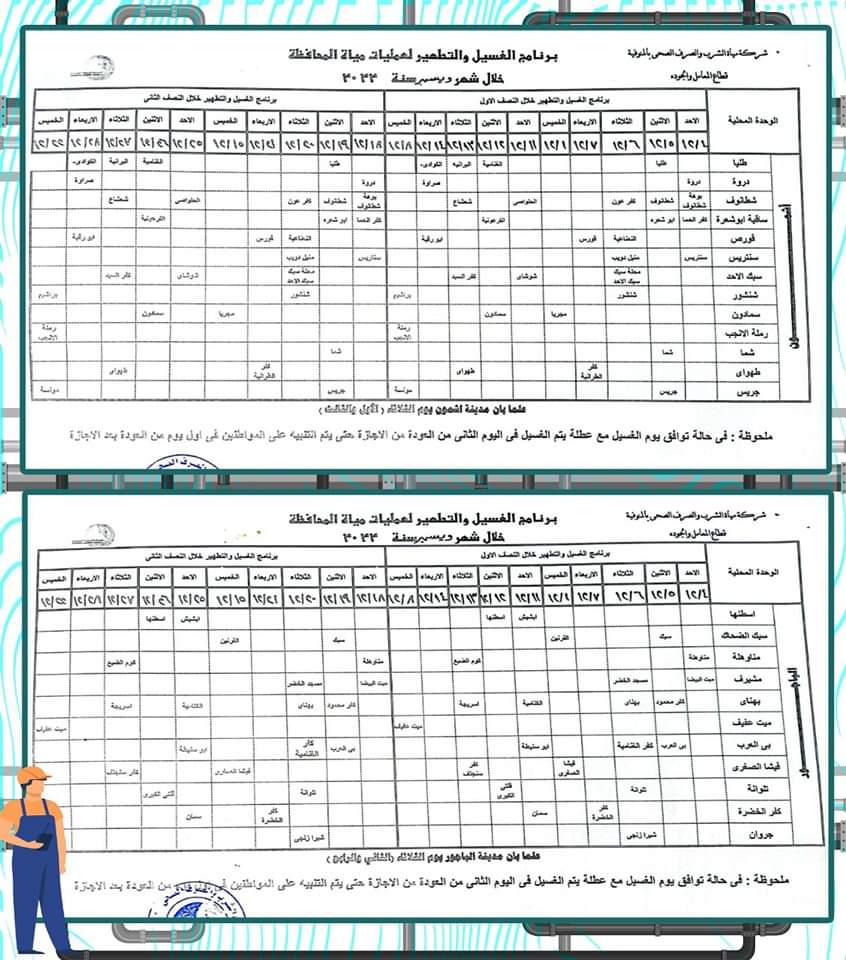 شركة مياة الشرب والصرف الصحى بالمنوفية
قطاع المعامل والجوده
برنامج الغسيل والتطهير لعمليات مياة المحافظة
خلال شهر ديسمبر سنة ٢٠٢٢
الوحدة المحلية
برنامج الغسيل والتطهير خلال النصف الاول
برنامج الغسيل والتطهير خلال النصف الثانى
الاحد الاثنين الثلاثاء الاربعاء الخميس الاحد الاثنين الثلاثاء الاربعاء الخميس الاحد الاثنين الثلاثاء الاربعاء الخميس الاحد الاثنين الثلاثاء الاربعاء الخميس
١٢/٤ ١٢/٥ ١٢/٦ ١٢/٧ ١٢/١ ١٢/١١ ١٢/١٢ ١٢/١٣ ١٢/١٤ ١٢/٨ ١٢/١٨ ١٢/١٩ ١٢/٢٠ ١٢/٢١ ١٢/١٥ ١٢/٢٥ ١٢/٢٦ ١٢/٢٧ ١٢/٢٨ ١٢/٢٢
أشمـــــون
طليا طليا الغنامية البرانية الكوادى طليا الغنامية البرانية الكوادى
دروة دروة صراوة دروة صراوة
شطانوف بوهة شطانوف شطانوف كفر عون الحلواصى شعشاع بوهة شطانوف شطانوف كفر عون الحلواصى شعشاع
ساقية ابوشعرة كفر الحما ابو شعره الفرعونية كفر الحما ابو شعره الفرعونية
قورص النعناعية قورس ابو رقبة النعناعية قورس ابو رقبة
سنتريس سنتريس منيل دويب سنتريس منيل دويب
سبك الاحد محلة سبك سبك الاحد شوشاى كفر السيد محلة سبك سبك الاحد شوشاى كفر السيد
شنشور شنشور براشيم شنشور براشيم
سمادون مجريا سمادون مجريا سمادون
رملة الانجب رملة الانجب رملة الانجب
شما شما شما
طهواى كفر الطرانية طهواى كفر الطرانية طهواى
جريس جريس مونسة جريس مونسة
علما بان مدينة اشمون يوم الثلاثاء ( الأول والثالث )
ملحوظة : فى حالة توافق يوم الغسيل مع عطلة يتم الغسيل فى اليوم الثانى من العودة من الاجازة حتى يتم التنبيه على المواطنين فى اول يوم من العودة بعد الاجازة
شركة مياة الشرب والصرف الصحى بالمنوفية
قطاع المعامل والجوده
برنامج الغسيل والتطهير لعمليات مياة المحافظة
خلال شهر ديسمبر سنة ٢٠٢٢
الوحدة المحلية
برنامج الغسيل والتطهير خلال النصف الاول
برنامج الغسيل والتطهير خلال النصف الثانى
الاحد الاثنين الثلاثاء الاربعاء الخميس الاحد الاثنين الثلاثاء الاربعاء الخميس الاحد الاثنين الثلاثاء الاربعاء الخميس الاحد الاثنين الثلاثاء الاربعاء الخميس
١٢/٤ ١٢/٥ ١٢/٦ ١٢/٧ ١٢/١ ١٢/١١ ١٢/١٢ ١٢/١٣ ١٢/١٤ ١٢/٨ ١٢/١٨ ١٢/١٩ ١٢/٢٠ ١٢/٢١ ١٢/١٥ ١٢/٢٥ ١٢/٢٦ ١٢/٢٧ ١٢/٢٨ ١٢/٢٢
الباجـــــور
اسطنها ابشيش اسطنها ابشيش اسطنها
سبك الضحاك سبك القرنين سبك القرنين
مناوهلة مناوهلة كوم الضبع مناوهلة كوم الضبع
مشيرف ميت البيضا مسجد الخضر ميت البيضا مسجد الخضر
بهناى كفر محمود بهناى الكتامية اسريجة كفر محمود بهناى الكتامية اسريجة
ميت عفيف ميت عفيف ميت عفيف
بى العرب بى العرب كفر القنامية ابو سنيطة بى العرب كفر القنامية ابو سنيطة
فيشا الصغرى فيشا الصغرى كفر سنجلف فيشا الصغرى كفر سنجلف
تلوانة تلوانة قلتى الكبرى تلوانة قلتى الكبرى
كفر الخضرة كفر الخضرة سمان كفر الخضرة سمان
جروان شبرا زنجى شبرا زنجى
علما بان مدينة الباجور يوم الثلاثاء ( الثانى والرابع )
ملحوظة : فى حالة توافق يوم الغسيل مع عطلة يتم الغسيل فى اليوم الثانى من العودة من الاجازة حتى يتم التنبيه على المواطنين فى اول يوم من العودة بعد الاجازة